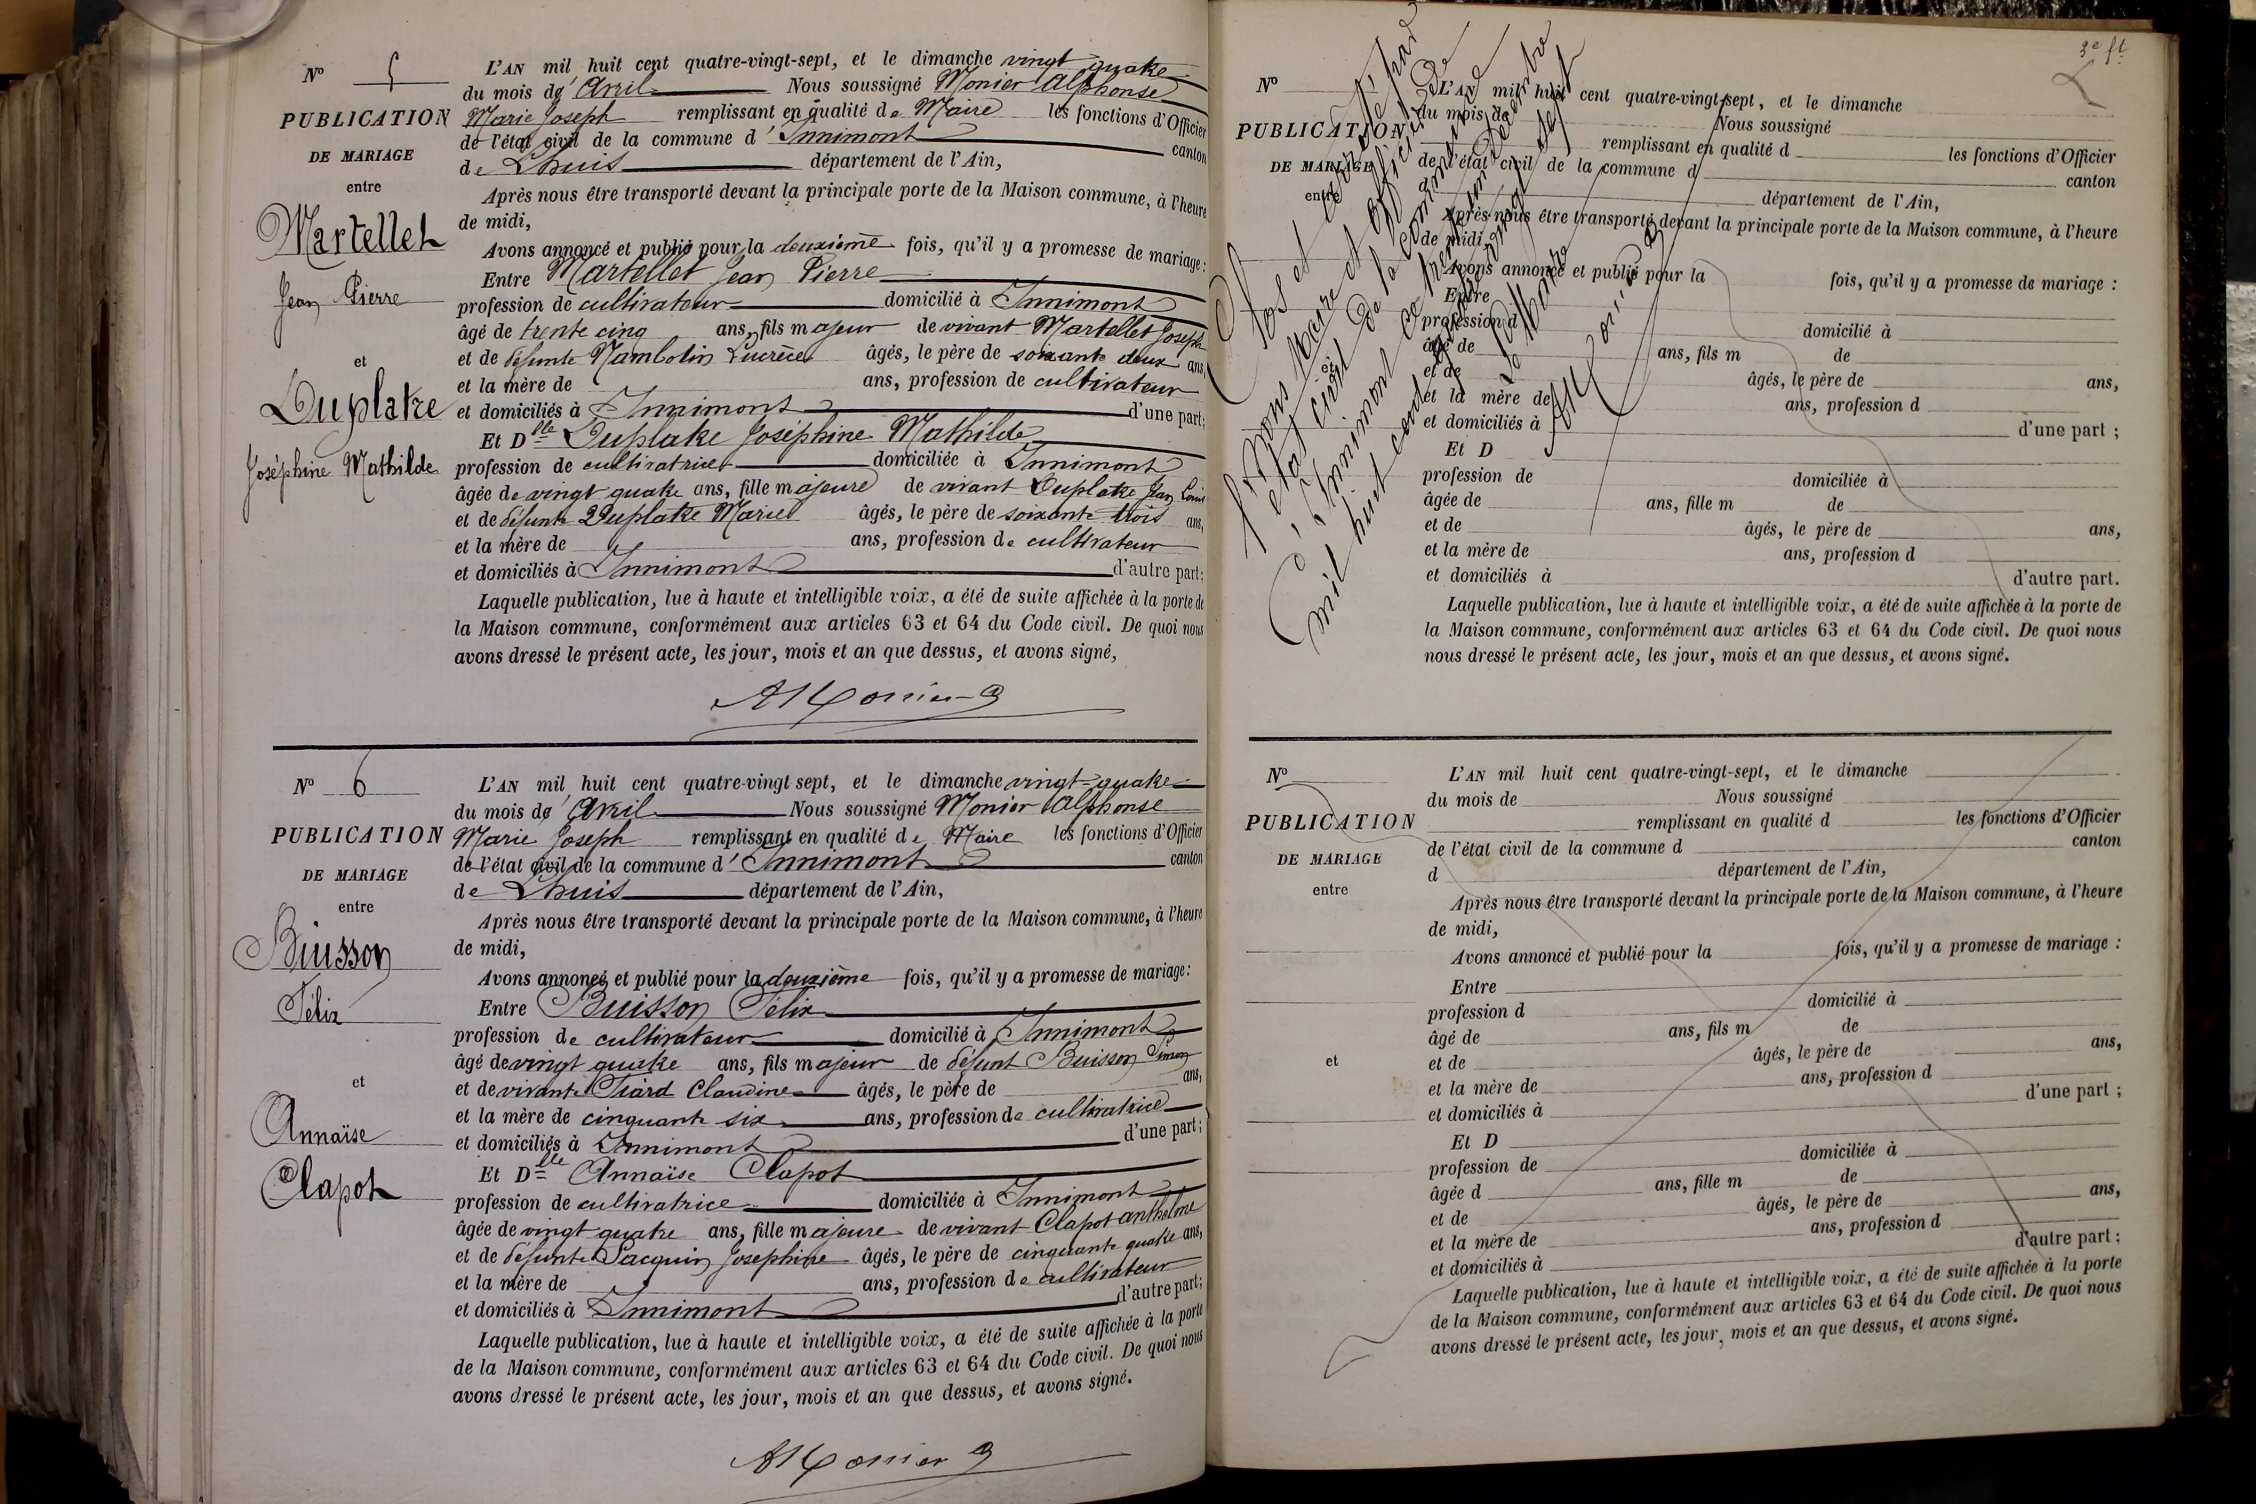 N° 5
PUBLICATION
DE MARIAGE
entre
Martellet
Jean Pierre
et
Duplatre
Joséphine Mathilde
L'AN mil huit cent quatre-vingt-sept, et le dimanche vingt quatre
du mois d'Avril Nous soussigné Monier Alphonse
Marie Joseph remplissant en qualité de Maire les fonctions d'Officier
de l'état civil de la commune d'Innimont canton
de Lhuis département de l'Ain,
Après nous être transporté devant la principale porte de la Maison commune, à l'heure
de midi,
Avons annoncé et publié pour la deuxième fois, qu'il y a promesse de mariage :
Entre Martellet Jean Pierre
profession de cultivateur domicilié à Innimont
âgé de trente cinq ans, fils majeur de vivant Martellet Joseph
et de défunte Mambolin Lucrèce âgés, le père de soixante deux ans,
et la mère de ans, profession de cultivateur
et domiciliés à Innimont d'une part;
Et Dlle Duplatre Joséphine Mathilde
profession de cultivatrice domiciliée à Innimont
âgée de vingt quatre ans, fille majeure de vivant Duplatre Jean Louis
et de défunte Duplatre Marie âgés, le père de soixante trois ans,
et la mère de ans, profession de cultivateur
et domiciliés à Innimont d'autre part;
Laquelle publication, lue à haute et intelligible voix, a été de suite affichée à la porte de
la Maison commune, conformément aux articles 63 et 64 du Code civil. De quoi nous
avons dressé le présent acte, les jour, mois et an que dessus, et avons signé,
AMonier
N° 6
PUBLICATION
DE MARIAGE
entre
Buisson
Félix
et
Annaïse
Clapot
L'AN mil huit cent quatre-vingt sept, et le dimanche vingt-quatre
du mois d'Avril Nous soussigné Monier Alphonse
Marie Joseph remplissant en qualité de Maire les fonctions d'Officier
de l'état civil de la commune d'Innimont canton
de Lhuis département de l'Ain,
Après nous être transporté devant la principale porte de la Maison commune, à l'heure
de midi,
Avons annoncé et publié pour la deuxième fois, qu'il y a promesse de mariage :
Entre Buisson Félix
profession de cultivateur domicilié à Innimont
âgé de vingt quatre ans, fils majeur de défunt Buisson Simon
et de vivante Claudine âgés, le père de ans,
et la mère de cinquante six ans, profession de cultivatrice
et domiciliés à Innimont d'une part;
Et Dlle Annaïse Clapot
profession de cultivatrice domiciliée à Innimont
âgée de vingt quatre ans, fille majeure de vivant Clapot anthelme
et de défunte Jacquin Josephine âgés, le père de cinquante quatre ans,
et la mère de ans, profession de cultivateur
et domiciliés à Innimont d'autre part;
Laquelle publication, lue à haute et intelligible voix, a été de suite affichée à la porte
de la Maison commune, conformément aux articles 63 et 64 du Code civil. De quoi nous
avons dressé le présent acte, les jour, mois et an que dessus, et avons signé.
AMonier
3e ft
N°
PUBLICATION
DE MARIAGE
entre
et
L'AN mil huit cent quatre-vingt-sept, et le dimanche
du mois de Nous soussigné
remplissant en qualité d les fonctions d'Officier
de l'état civil de la commune d canton
département de l'Ain,
Après nous être transporté devant la principale porte de la Maison commune, à l'heure
de midi
Avons annoncé et publié pour la fois, qu'il y a promesse de mariage :
Entre
profession d domicilié à
âgé de ans, fils m de
et de âgés, le père de ans,
et la mère de ans, profession d
et domiciliés à d'une part ;
Et D
profession de domiciliée à
âgée de ans, fille m de
et de âgés, le père de ans,
et la mère de ans, profession d
et domiciliés à d'autre part.
Laquelle publication, lue à haute et intelligible voix, a été de suite affichée à la porte de
la Maison commune, conformément aux articles 63 et 64 du Code civil. De quoi nous
nous dressé le présent acte, les jour, mois et an que dessus, et avons signé.
Clos et arrêté par
Nous Maire et officier de
l'état civil de la commune
d'Innimont ce trente un Décembre
mil huit cent quatre vingt sept
Le Maire
AMonier
N°
PUBLICATION
DE MARIAGE
entre
et
L'AN mil huit cent quatre-vingt-sept, et le dimanche
du mois de Nous soussigné
remplissant en qualité d les fonctions d'Officier
de l'état civil de la commune d canton
d département de l'Ain,
Après nous être transporté devant la principale porte de la Maison commune, à l'heure
de midi,
Avons annoncé et publié pour la fois, qu'il y a promesse de mariage :
Entre
profession d domicilié à
âgé de ans, fils m de
et de âgés, le père de ans,
et la mère de ans, profession d
et domiciliés à d'une part ;
Et D
profession de domiciliée à
âgée d ans, fille m de
et de âgés, le père de ans,
et la mère de ans, profession d
et domiciliés à d'autre part ;
Laquelle publication, lue à haute et intelligible voix, a été de suite affichée à la porte
de la Maison commune, conformément aux articles 63 et 64 du Code civil. De quoi nous
avons dressé le présent acte, les jour, mois et an que dessus, et avons signé.